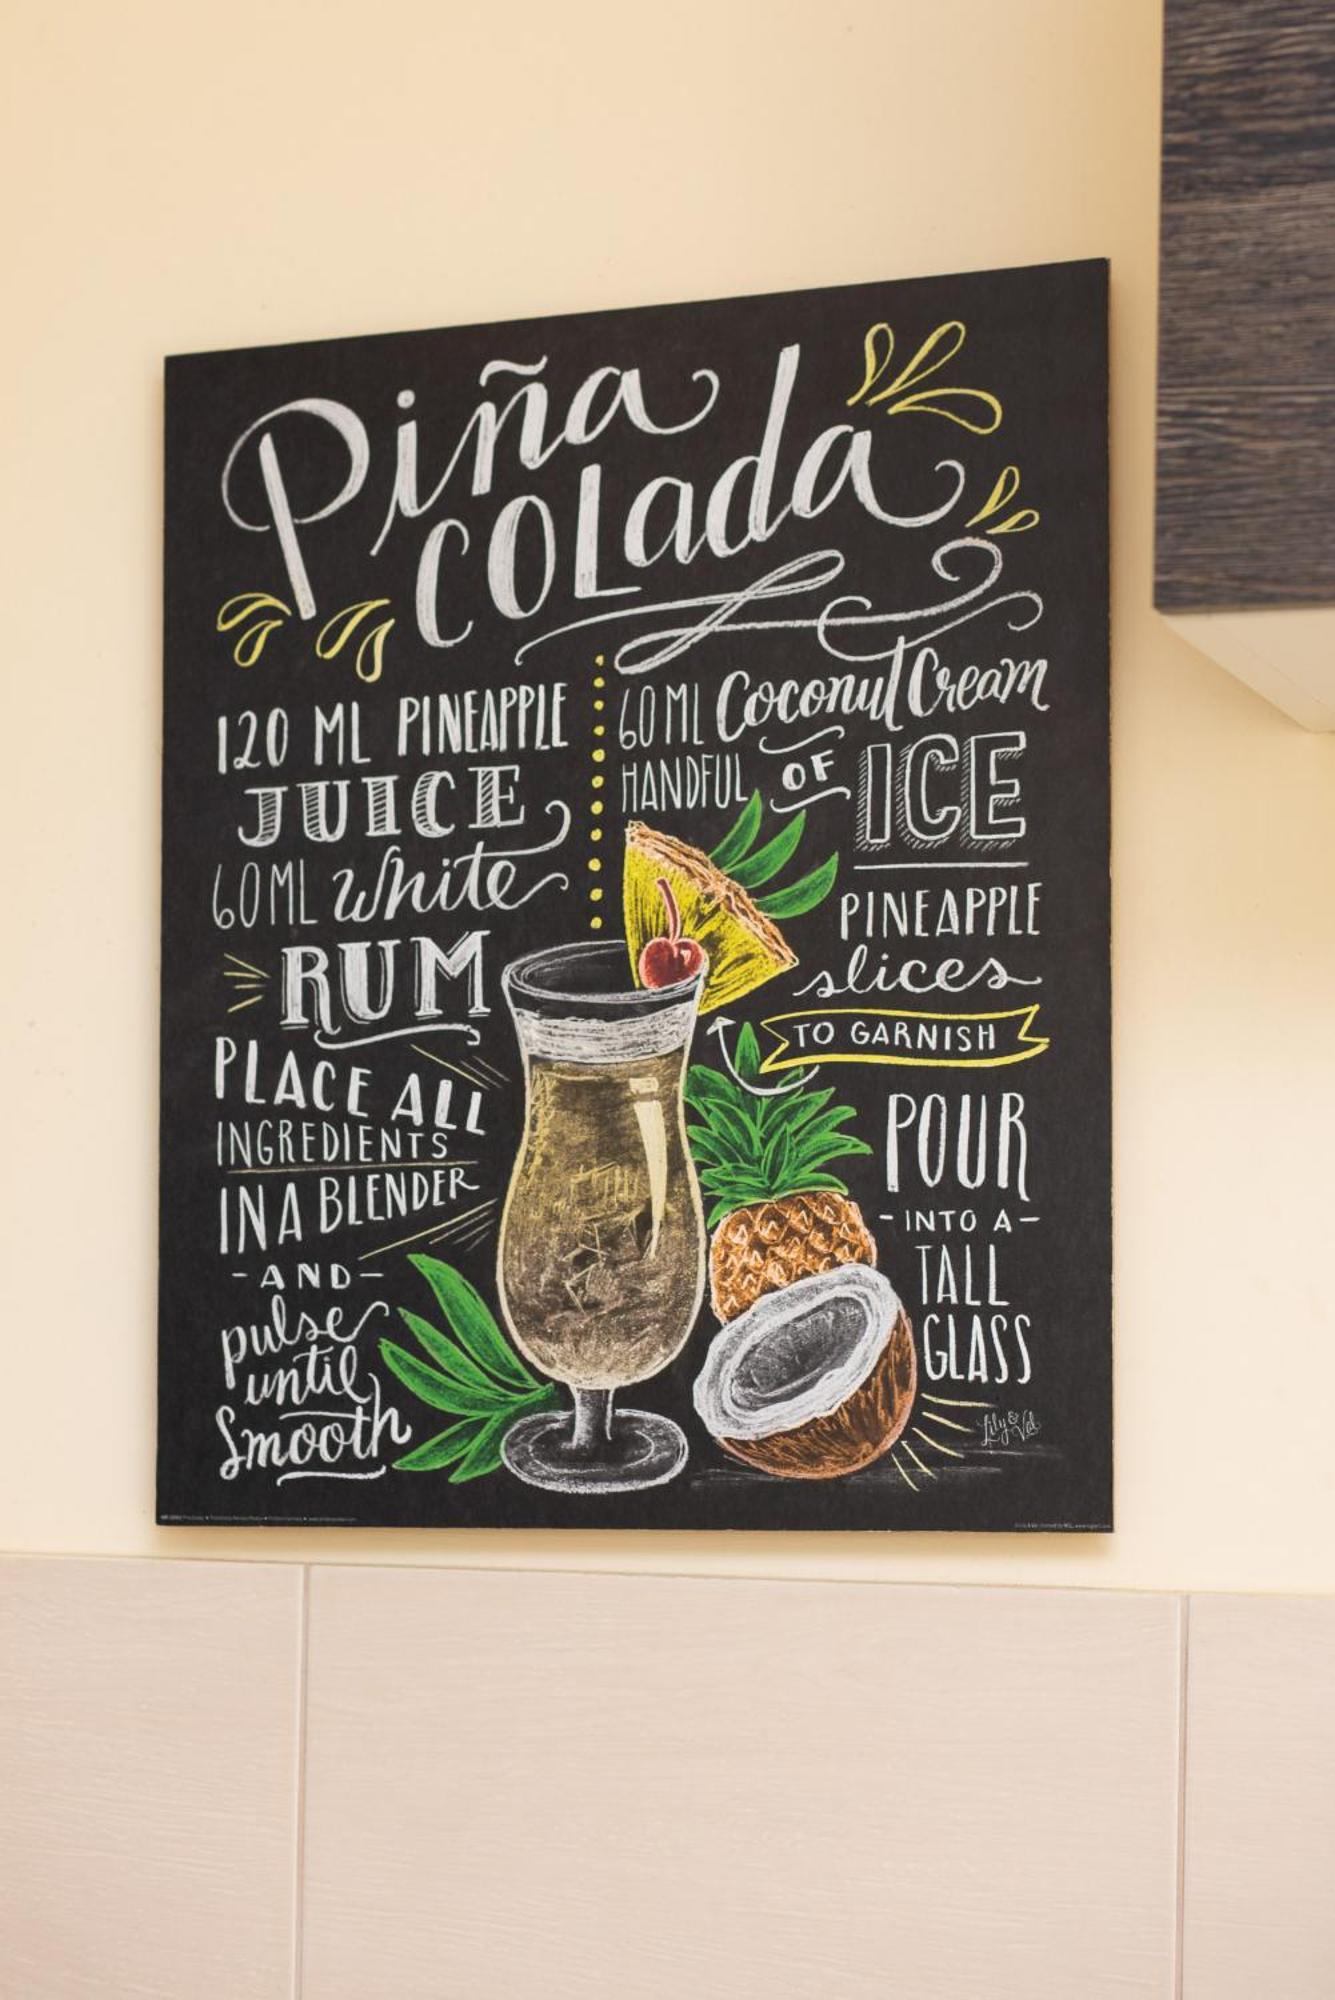 Piña
COLada
120 ML PINEAPPLE
JUICE
60ML White
RUM
PLACE ALL
INGREDIENTS
IN A BLENDER
-AND-
pulse
until
Smooth
60 ML Coconut Cream
HANDFUL OF ICE
PINEAPPLE
slices
TO GARNISH
POUR
-INTO A-
TALL
GLASS
Lily & Val